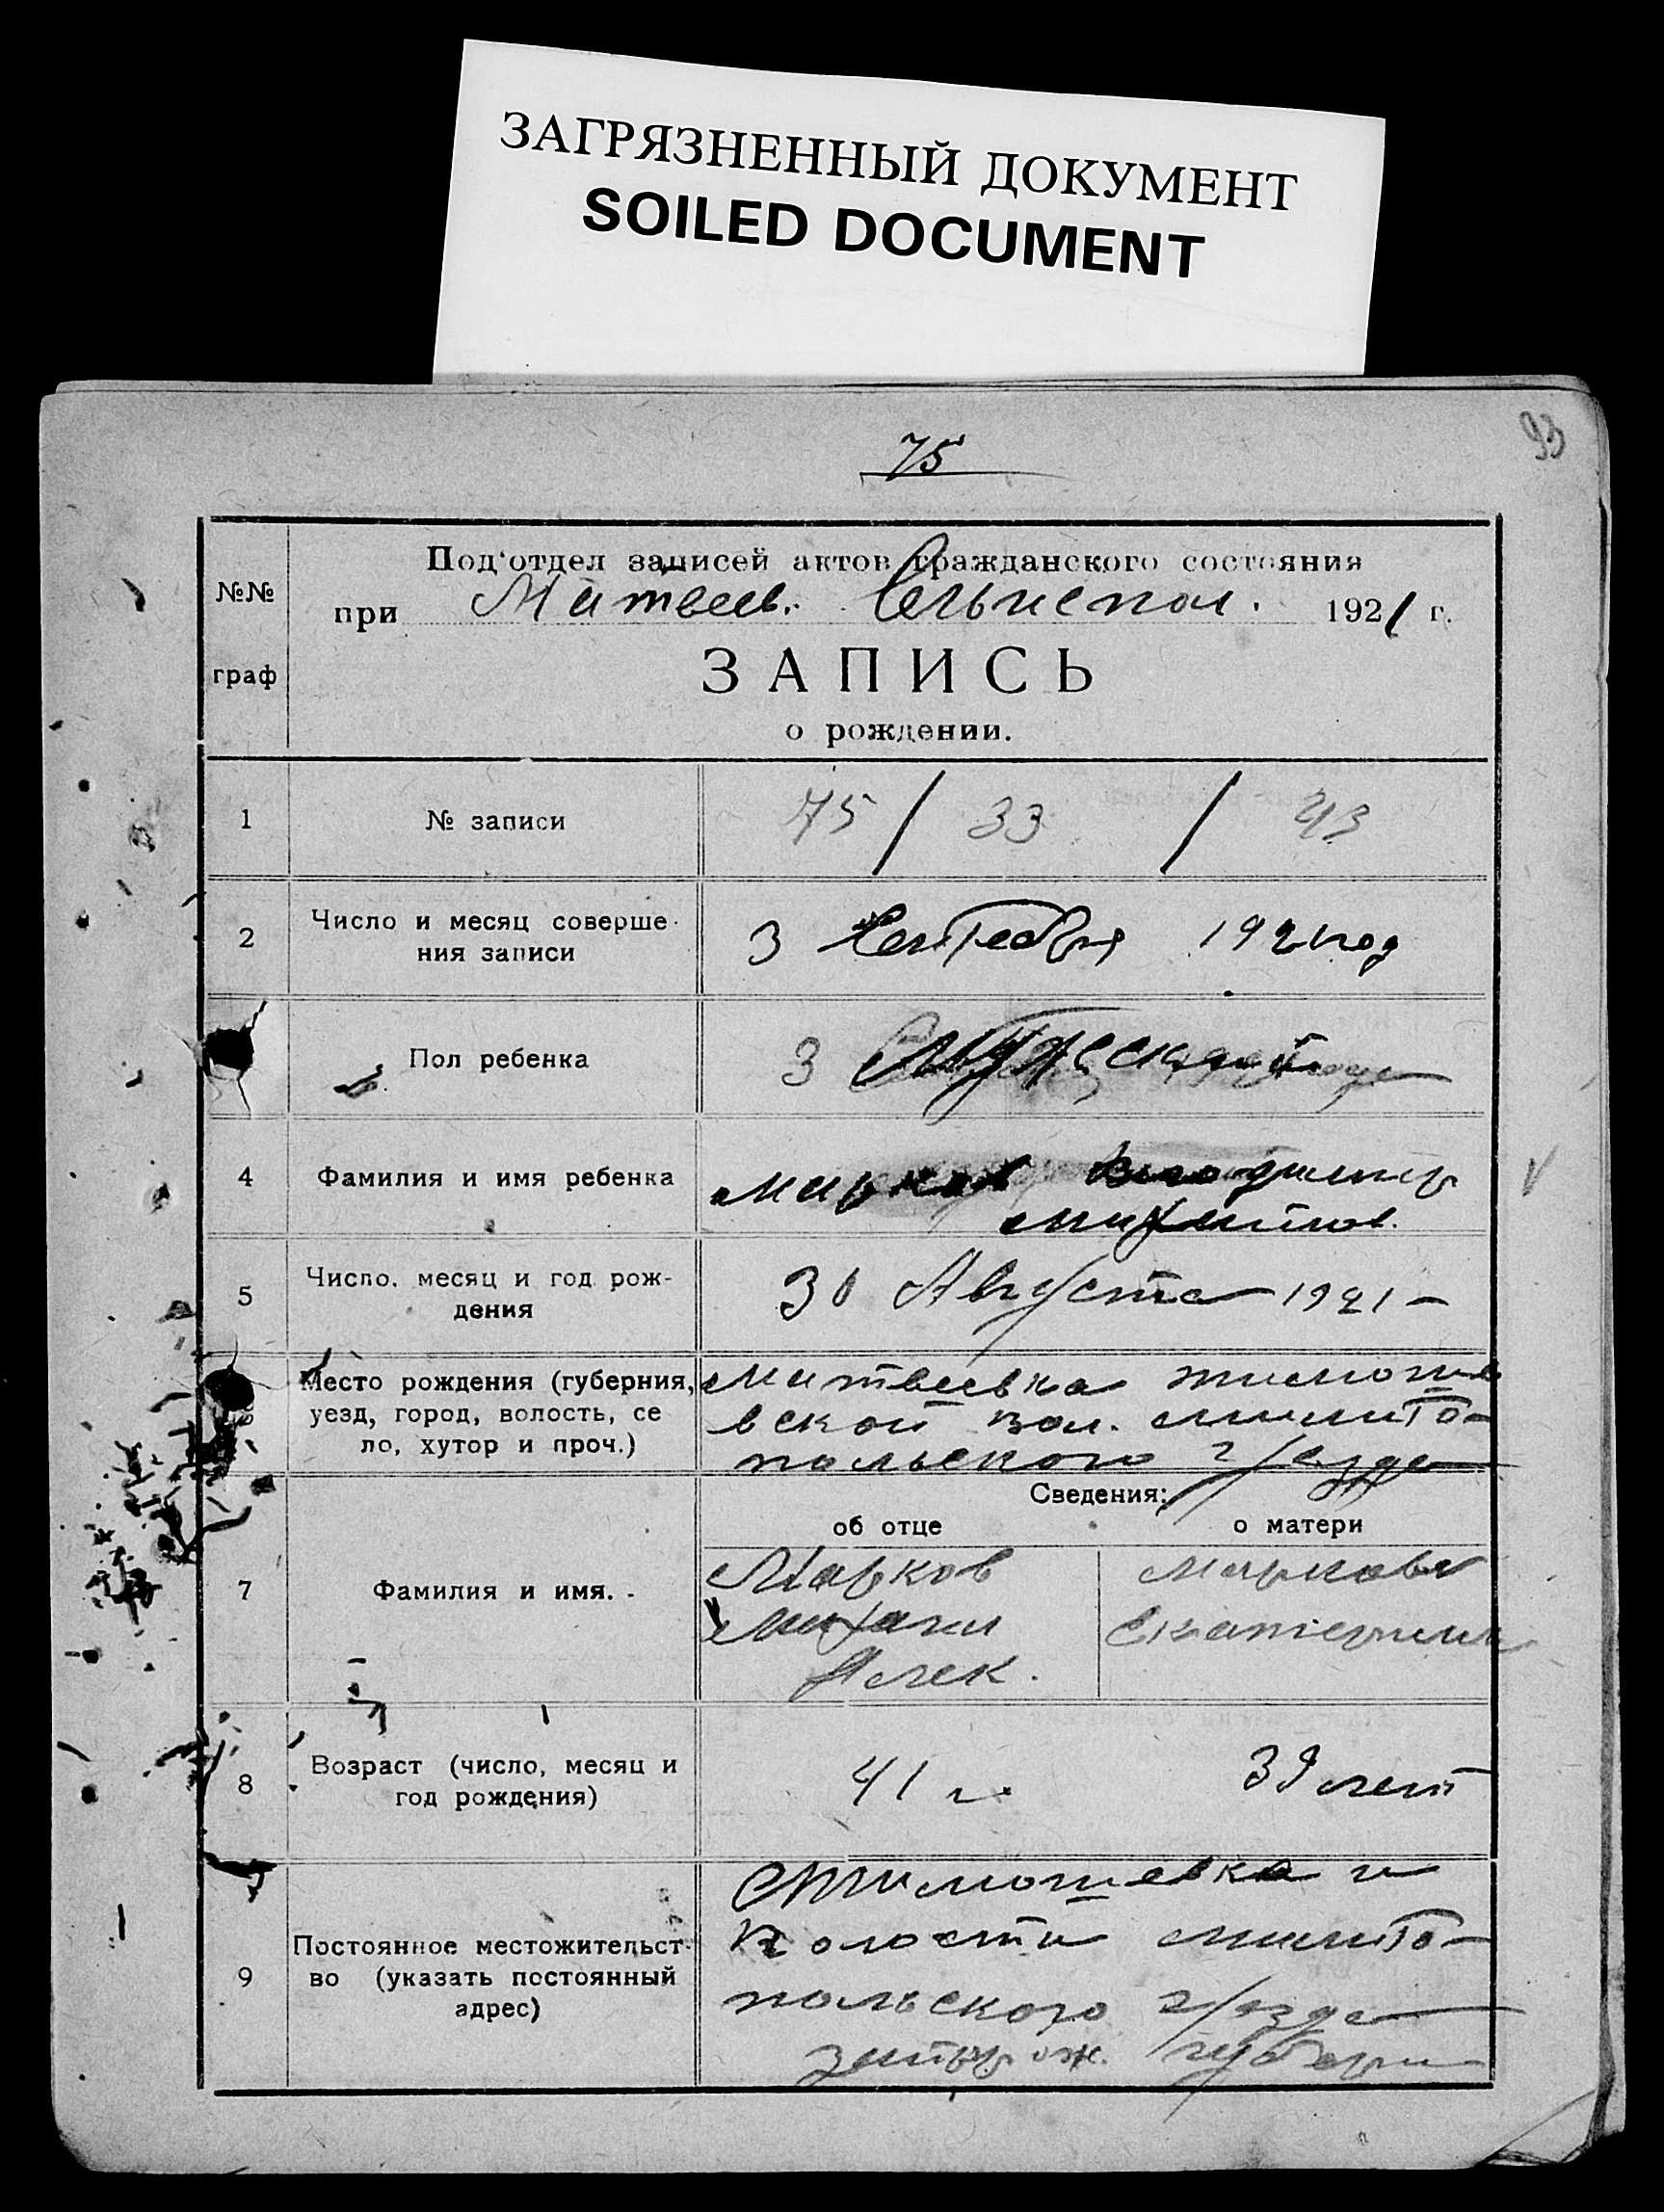 ЗАГРЯЗНЕННЫЙ ДОКУМЕНТ
SOILED DOCUMENT
93
75
№№
граф
Под'отдел записей актов гражданского состояния
при Матвеев. Сельиспол. 1921 г.
ЗАПИСЬ
о рождении.
1
№ записи
75 / 33 / 43
2
Число и месяц соверше-
ния записи
3 Сентебря 1921 год
Пол ребенка
3 Мужеской
4
Фамилия и имя ребенка
Марков Владимир
Михайлов.
5
Число, месяц и год рож-
дения
30 Августа 1921 –
Место рождения (губерния,
уезд, город, волость, се
ло, хутор и проч.)
Матвеевка Тимоше
вской вол. Мелито-
польского уезда
Сведения:
об отце
о матери
7
Фамилия и имя.
Марков
Михаил
Алек.
Маркова
Екатерина
8
Возраст (число, месяц и
год рождения)
41 г.
39 лет
9
Постоянное местожительст-
во (указать постоянный
адрес)
Тимошевка и
Волости Мелито-
польского уезда
запорож. губерни